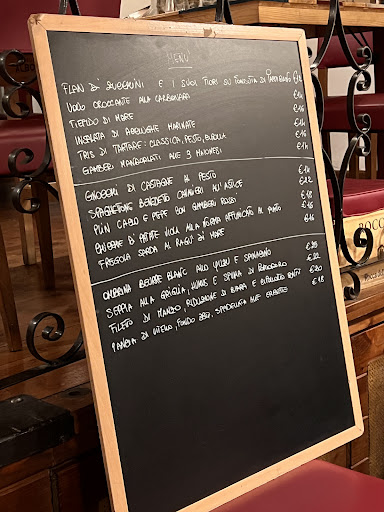 MENÙ
FLAN DI ZUCCHINI E I SUOI FIORI SU FONDUTA DI € 14
UOVO CROCCANTE ALLA CARBONARA € 14
TIEPIDO DI MARE € 16
INSALATA DI ACCIUGHE MARINATE € 14
TRIS DI TARTARE: CLASSICA, PESTO, € 16
GAMBERI MANDORLATI ALLE 3 MAIONESI € 14
GNOCCHI DI CASTAGNE AL PESTO € 14
SPAGHETTONE BENEDETTO CAVALIERI ALL'ASTICE € 22
PLIN CACIO E PEPE CON GAMBERO ROSSO € 18
DI PATATE VIOLA ALLA NORMA AFFUMICATO AL € 16
FREGOLA SARDA AL RAGÙ DI MARE € 16
OMBRINA BEURRE BLANC ALLO YUZU E SPINACINO € 25
SEPPIA ALLA GRIGLIA, HUMUS E SPUMA DI POMODORO € 22
FILETO DI MANZO, RIDUZIONE DI BIRRA E € 20
PANCIA DI VITELLO, FONDO € 18
BOCC